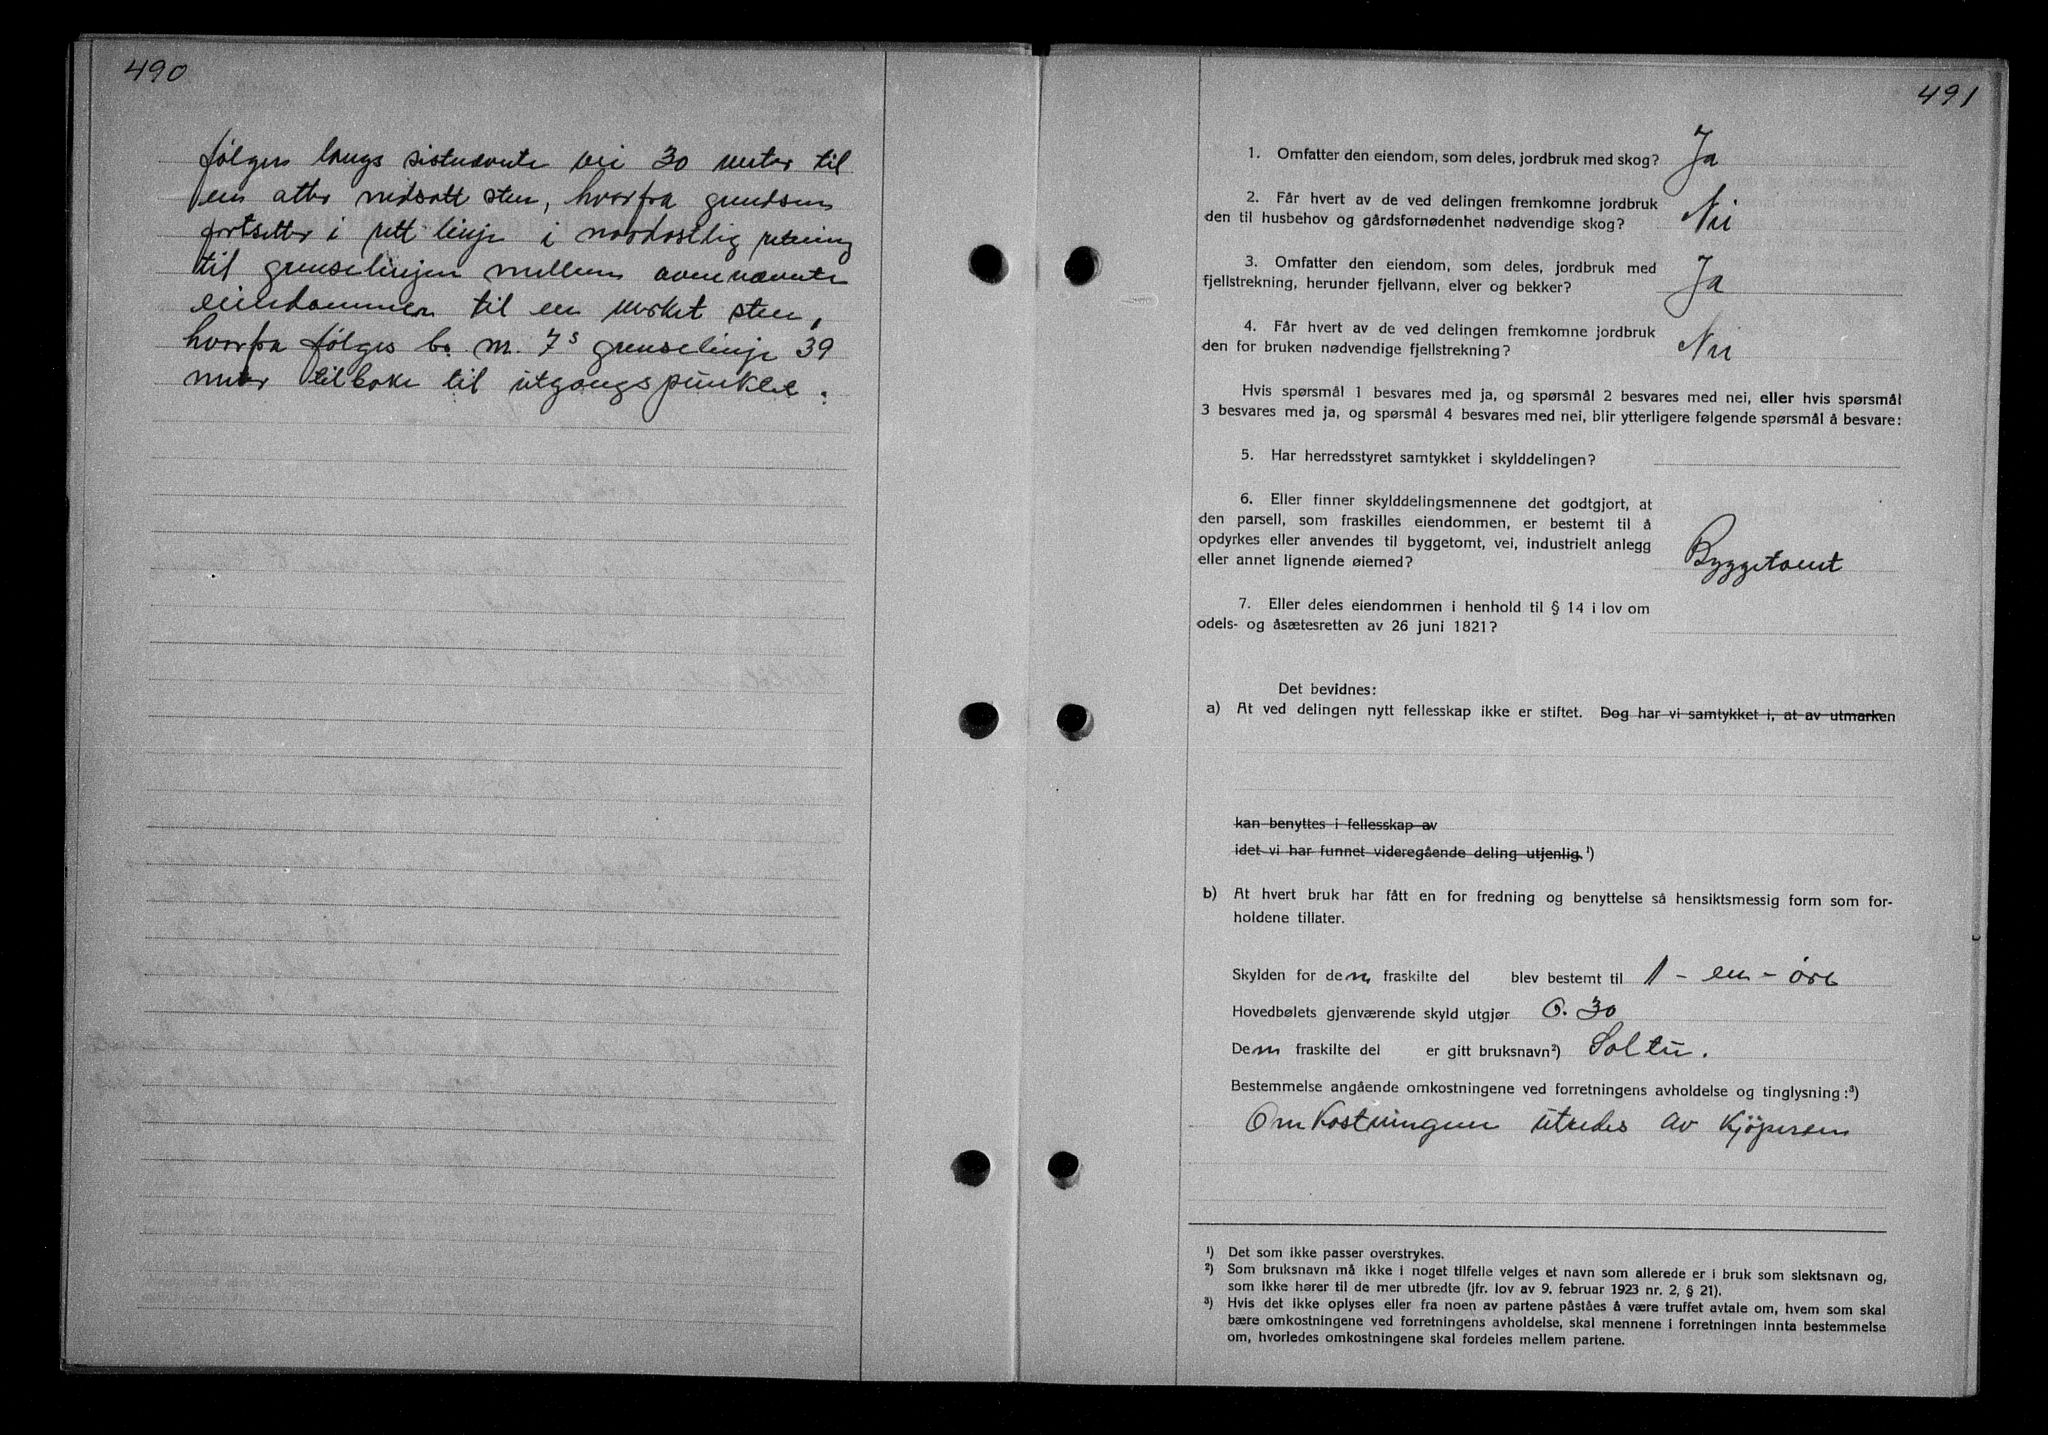 490
følges langs sistnævnte vei 30 meter til
en atter nedsatt sten, hvorfra grendsen
fortsetter i rett linje i nordostlig retning
til grenselinjen mellem ovennævnte
eiendommer til en merket sten,
hvorfra følges b. m. 7s grenselinje 39
meter tilbake til utgangspunktet.
491
1. Omfatter den eiendom, som deles, jordbruk med skog? Ja
2. Får hvert av de ved delingen fremkomne jordbruk
den til husbehov og gårdsfornødenhet nødvendige skog? Nei
3. Omfatter den eiendom, som deles, jordbruk med
fjellstrekning, herunder fjellvann, elver og bekker? Ja
4. Får hvert av de ved delingen fremkomne jordbruk
den for bruken nødvendige fjellstrekning? Nei
Hvis spørsmål 1 besvares med ja, og spørsmål 2 besvares med nei, eller hvis spørsmål
3 besvares med ja, og spørsmål 4 besvares med nei, blir ytterligere følgende spørsmål å besvare:
5. Har herredsstyret samtykket i skylddelingen?
6. Eller finner skylddelingsmennene det godtgjort, at
den parsell, som fraskilles eiendommen, er bestemt til å
opdyrkes eller anvendes til byggetomt, vei, industrielt anlegg
eller annet lignende øiemed? Byggetomt
7. Eller deles eiendommen i henhold til § 14 i lov om
odels- og åsætesretten av 26 juni 1821?
Det bevidnes:
a) At ved delingen nytt fellesskap ikke er stiftet. Dog har vi samtykket i, at av utmarken
kan benyttes i fellesskap av
idet vi har funnet videregående deling utjenlig. ¹)
b) At hvert bruk har fått en for fredning og benyttelse så hensiktsmessig form som for-
holdene tillater.
Skylden for den fraskilte del blev bestemt til 1 - en - øre
Hovedbølets gjenværende skyld utgjør 0.30
Den fraskilte del er gitt bruksnavn²) Soltu.
Bestemmelse angående omkostningene ved forretningens avholdelse og tinglysning:³)
Omkostningen utredes av kjøperen
¹) Det som ikke passer overstrykes.
²) Som bruksnavn må ikke i noget tilfelle velges et navn som allerede er i bruk som slektsnavn og,
som ikke hører til de mer utbredte (jfr. lov av 9. februar 1923 nr. 2, § 21).
³) Hvis det ikke oplyses eller fra noen av partene påståes å være truffet avtale om, hvem som skal
bære omkostningene ved forretningens avholdelse, skal mennene i forretningen innta bestemmelse
om, hvorledes omkostningene skal fordeles mellem partene.